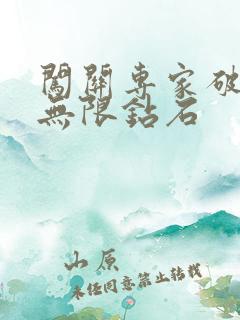 闖關專家破
無限鉆石
山原
未经同意禁止转载